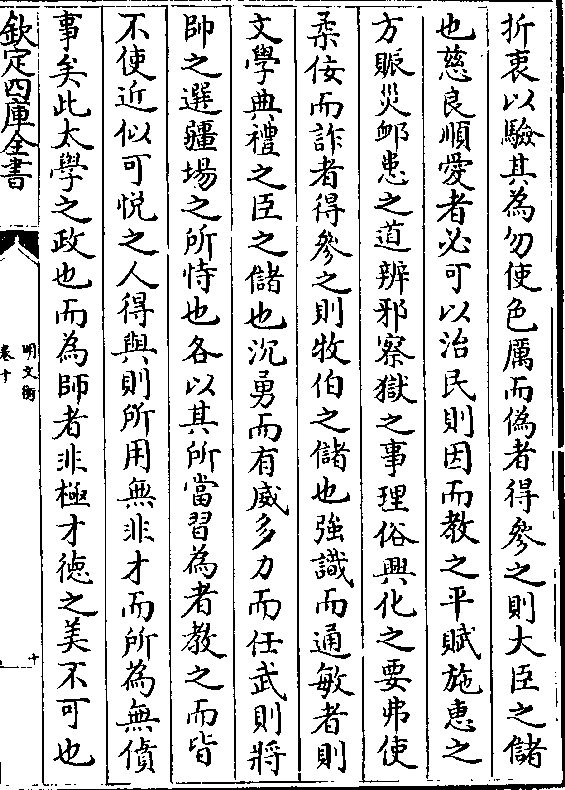 折衷以驗其為勿使色厲而偽者得參之則大臣之儲
也慈良順愛者必可以治民則因而教之平賦施惠之
方賑災卹患之道辨邪察獄之事理俗興化之要弗使
柔佞而詐者得參之則牧伯之儲也強識而通敏者則
文學典禮之臣之儲也沉勇而有威多力而任武則將
帥之選疆場之所恃也各以其所當習為者教之而皆
不使近似可悅之人得與則所用無非才而所為無僨
事矣此太學之政也而為師者非極才德之美不可也
欽定四庫全書
明文衡
卷十
十